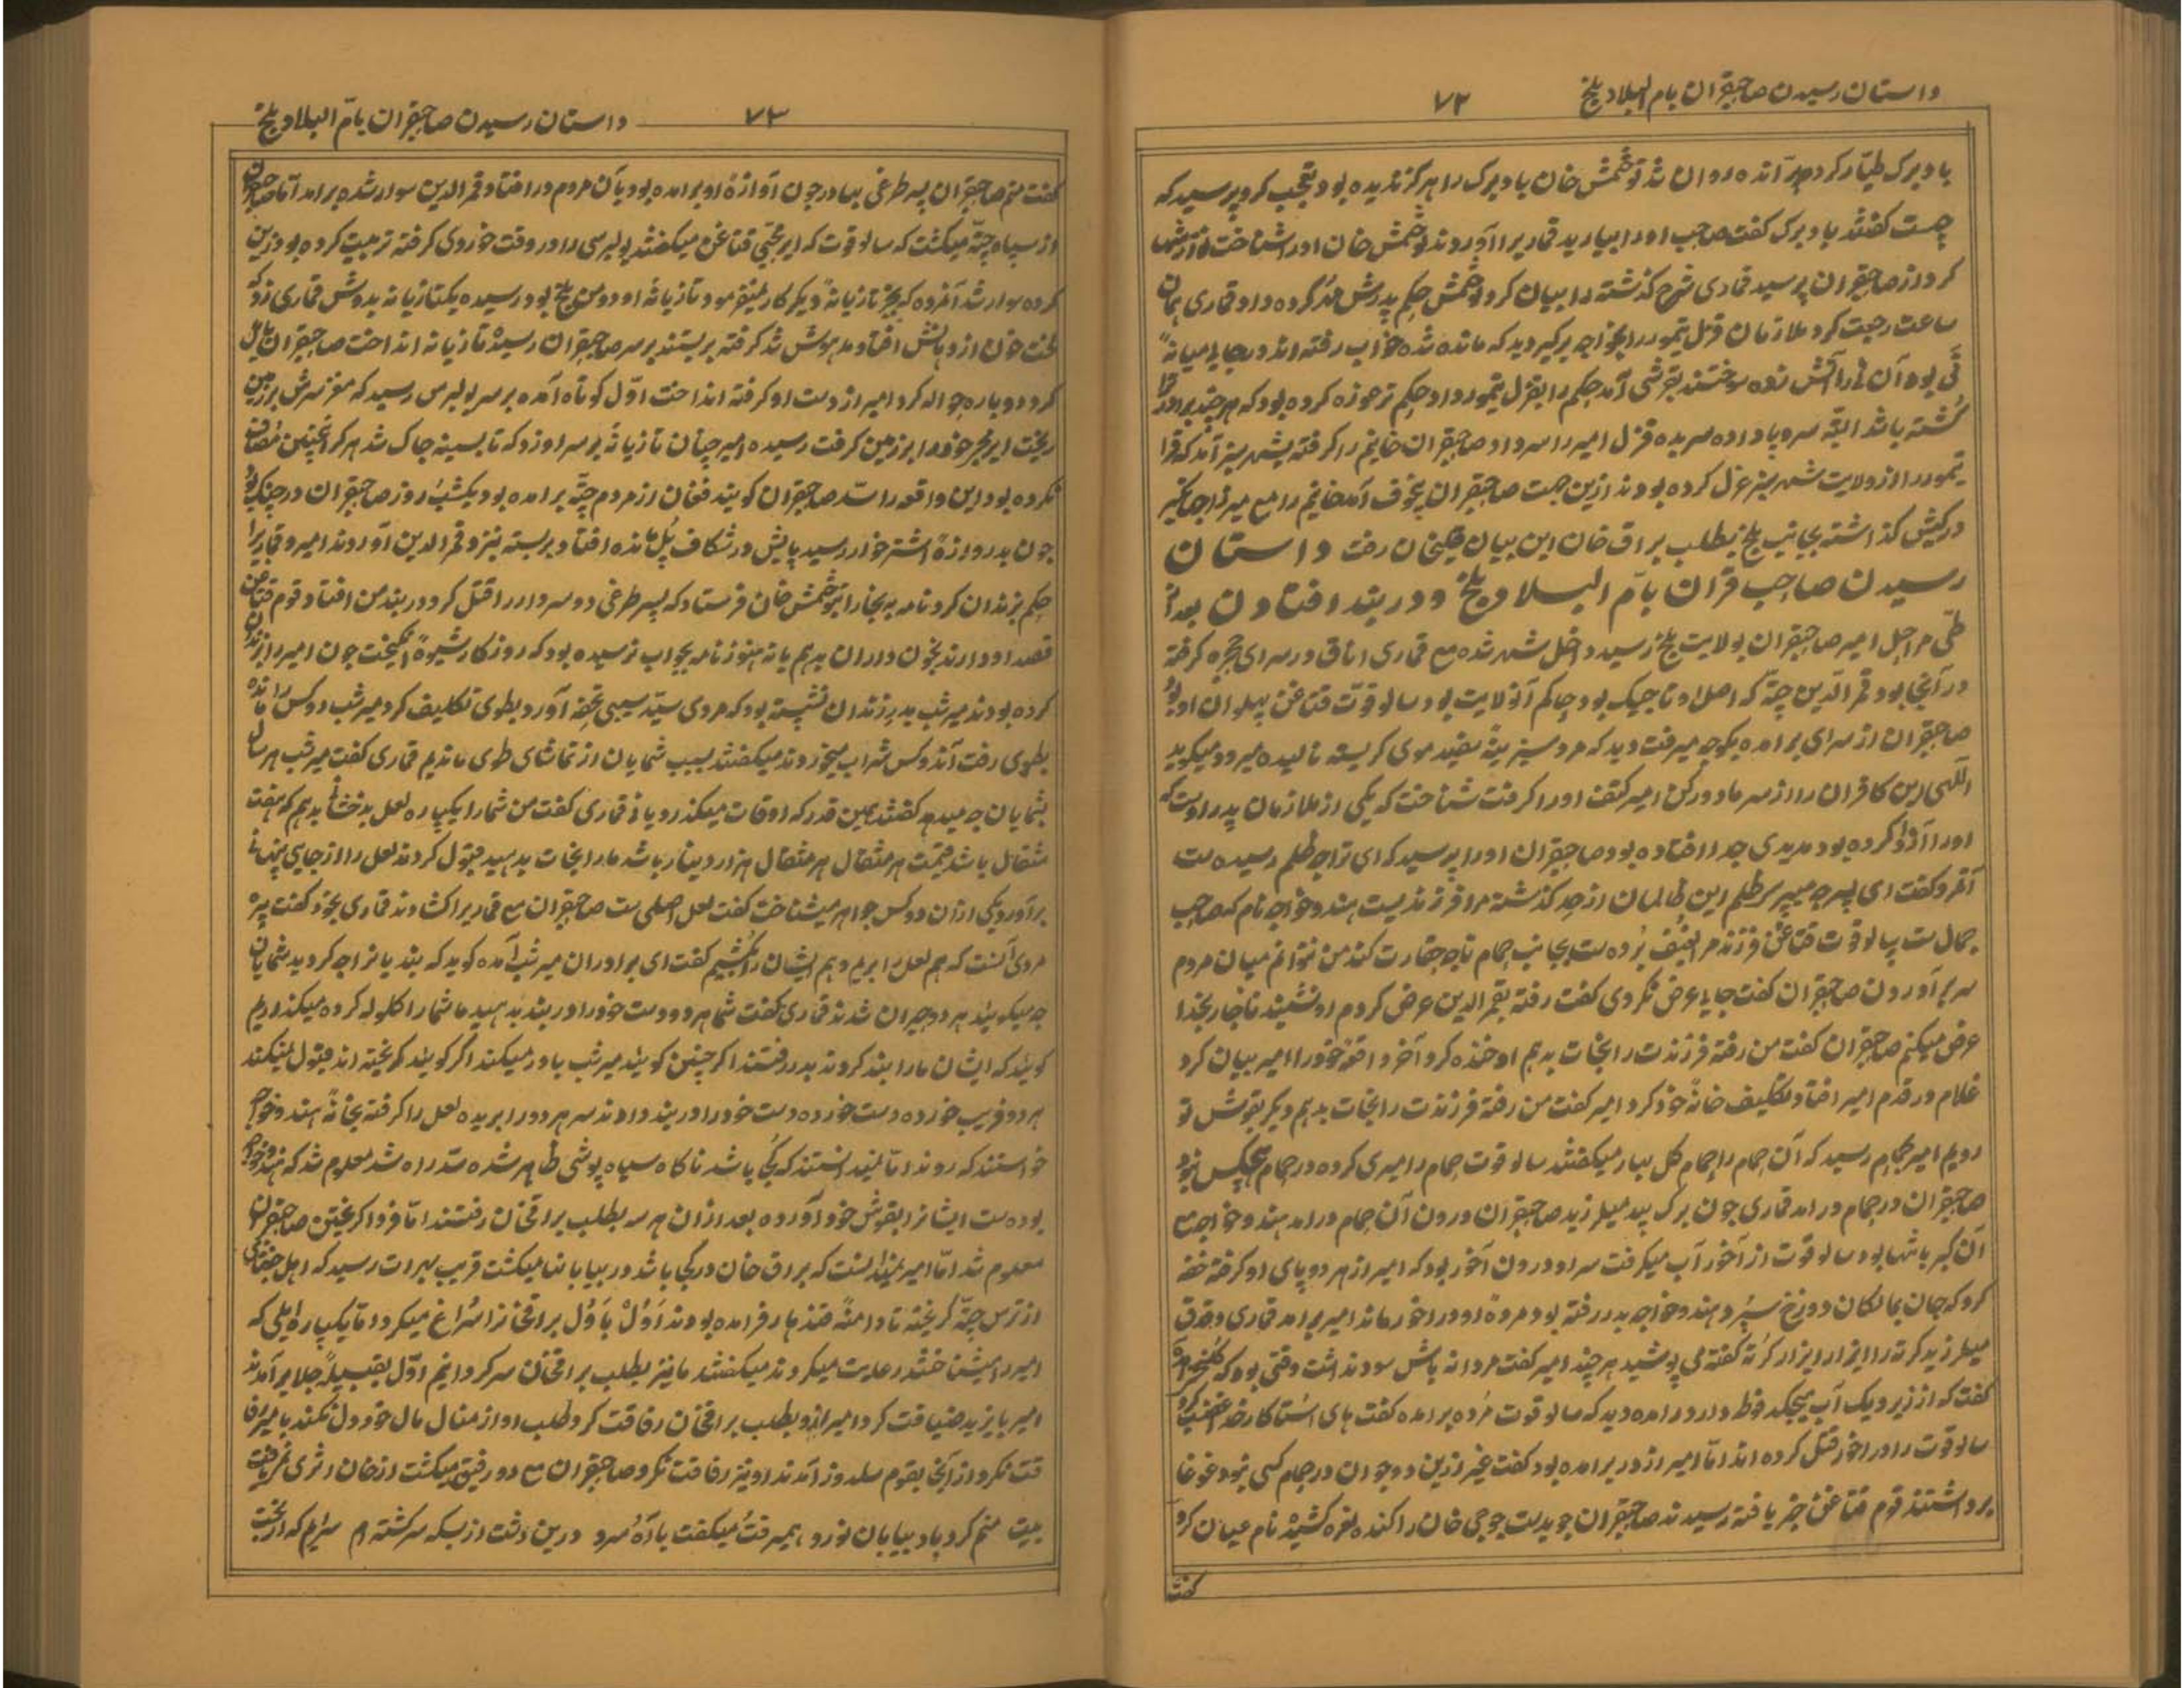 داستان رسیدن صاحبقران بام البلاد بلخ
۷۲
باد برک طیار کرده برآنده روان شد توخمش خان باد برک را هرگز ندیده بود تعجب کرد پرسید که
چیست گفتند باد برک گفت صاحب اورا بیارید قماریرا آوردند توخمش خان اورا شناخت
کرد از صاحبقران پرسید قماری شرح گذشته را بیان کرد توخمش حکم پدرش مهر کرده داد قماری همان
ساعت رجعت کرد ملازمان قزل تیمور را بخواجه برگیر دید که مانده شده خواب رفته اند در جای
نی بود آن نی را آتش زده سوختند بقرشی آمد حکم را بقزل تیمور داد حکم ترحوزه کرده بود که هر چند برادر
کشته باشد البته سروپا داده سربده قزل امیر را سر داد صاحبقران خانیم را گرفته بشهر سبز آمد که قرا
تیمور را از ولایت شهر سبز عزل کرده بودند ازین جهت صاحبقران بخوف آمد خانیم را مع میرزا جهانگیر
در کیش گذاشته بجانب بلخ بطلب براق خان این بیان رفت داستان
رسیدن صاحب قران بام البلاد بلخ و در بند افتادن بعد از
طی مراحل امیر صاحبقران بولایت بلخ رسید داخل شهر شده مع قماری اتاق در سرای حجره گرفته
در آنجا بود قمر الدین چته که اصل او تاجیک بود حاکم آنولایت بود سالوقوت قتاغن پهلوان او بود
صاحبقران از سرای برامده بکوچه میرفت دید که مرد سبز سفید موی گریسته نالیده میرود میگوید
الهی این کافران را از سر ما دور کن امیر کتف اورا گرفت شناخت که یکی از ملازمان پدر اوست که
اورا آزاد کرده بود مدیدی جدا افتاده بود صاحبقران اورا پرسید که ای ترا چه ظلم رسیده است
آخر و گفت ای پسر چه میپرسی ظلم این ظالمان از حد گذشته مرا فرزندیست هندو خواجه نام که صاحب
جمال است سالوقوت قتاغن فرزند مرا بعنف برده است بجانب حمام تا چه حقارت کند من نتوانم میان مردم
سر برآوردن صاحبقران گفت جایا عرض نکردی گفت رفته بقمر الدین عرض کردم او نشنید ناچار بخدا
عرض میکنم صاحبقران گفت من رفته فرزندت را نجات بدهم او خنده کرد آخر واقعه خود را امیر بیان کرد
غلام در قدم امیر افتاد تکلیف خانه خود کرد امیر گفت من رفته فرزندت را نجات بدهم دیگر بقوش تو
رویم امیر بحمام رسید که آن حمام را حمام گل بهار میگفتند سالوقوت حمام را میری کرده در حمام هیچکس نبود
صاحبقران در حمام درامد قماری چون برک بید میلرزید صاحبقران درون آن حمام درامد هندو خواجه مع
آن گبر باشها بود سالوقوت از آخور آب میگرفت سر او درون آخور بود که امیر از هر دو پای او گرفته خفه
کرد که جان بمالکان دوزخ سپرد هندو خواجه بدر رفته بود مرده او در آخور ماند امیر برامد قماری دق دق
میلرزید کرته را ایزار ایزار کرته گفته می پوشید هر چند امیر گفت مردانه باش سود نداشت وقتی بود که
گفت که از زیر دیک آب میچکد فوطه دار درامده دید که سالوقوت مرده برامده گفت های استا کار
سالوقوت را در آخور قتل کرده اند اما امیر از در برامده بود گفت غیر ازین دو جوان در حمام کسی نبود غوغا
برداشتند قوم قتاغن خبر یافته رسیدند صاحبقران چوبدست جوجی خان را کنده نعره کشید نام عیان کرد
گفت
۷۳
داستان رسیدن صاحبقران بام البلاد بلخ
گفت منم صاحبقران پسر طرغی بهادر چون آوازه او برامده بود بآن مردم در افتاد قمر الدین سوار شده برامد اما صاحبقران
از سپاه چته میکشت که سالوقوت که ایر نجتی قتاغن میگفتند بولبرسی را در وقت خوردی گرفته تربیت کرده بود زین
کرده سوار شد آمد که بجز تازیانه دیگر کار نمیفرمود تازیانه او دو من بلخ بود رسیده یکتا تازیانه بدوش قماری زد که
لخت خون از دهانش افتاد مدهوش شد گرفته بربستند بر سر صاحبقران رسیده تازیانه انداخت صاحبقران
کرد دوباره حواله کرد امیر از دست او گرفته انداخت اول کوتاه آمده بر سر بولبرس رسید که مغز سرش بر زمین
ریخت ایر نجر خود را بر زمین گرفت رسیده امیر چنان تازیانه بر سر او زد که تا بسینه چاک شد هرگز اینچنین مصاف
نکرده بود این واقعه را سد صاحبقران گویند فغان از مردم چته برامده بود یکشب روز صاحبقران در جنگ بود
چون بدروازه اشتر خوار رسید پایش در شکاف پل مانده افتاد بربسته بنزد قمر الدین آوردند امیر و قماریرا
حکم بزندان کرد نامه به بخارا بتوخمش خان فرستاد که پسر طرغی دو سردار را قتل کرد در بند من افتاد قوم قتاغن
قصد او دارند بخون داران بدهم یا نه هنوز نامه بجواب نرسیده بود که روزگار شیوه انگیخت چون امیر را بزندان
کرده بودند میر شب بدر زندان نشسته بود که مردی سید سیبی تحفه آورد بطوی تکلیف کرد میر شب دو کس را مانده
بطوی رفت آندو کس شراب میخوردند میگفتند بسبب شمایان از تماشای طوی ماندیم قماری گفت میر شب هر سال
بشمایان چه میدهد گفتند همین قدر که اوقات میگذرد یا نی قماری گفت من شما را یکپاره لعل بدخشان بدهم که هفت
مثقال باشد قیمت هر مثقال هر مثقال هزار دینار باشد ما را نجات بدهید قبول کردند لعل را از جایی پنهانی
برآورد یکی از آن دو کس جواهر میشناخت گفت لعل اصلی است صاحبقران مع قماریرا کشادند قماری بخود گفت پیر
مردی آنست که هم لعل را بریم و هم ایشان را بکشیم گفت ای برادران میر شب آمده گوید که بندیانرا چه کردید شمایان
چه میگویند هر دو حیران شدند قماری گفت شما هر دو دست خود را در بند بدهید ما شما را کلوله کرده میگذرویم
گویند که ایشان ما را بند کردند بدر رفتند اگر چنین گویند میر شب باور میکند اگر گویند گریخته اند قبول نمیکند
هر دو فریب خورده دست خورده دست خود را در بند دادند سر هر دو را بریده لعل را گرفته بخانه هندو خواجه
خواستند که روند اما نمیدانستند که کجا باشد ناگاه سیاه پوشی ظاهر شده سد راه شد معلوم شد که هندو خواجه
بوده است ایشانرا بقوش خود آورده بعد از آن هر سه بطلب براقخان رفتند اما فردا گریختن صاحبقران
معلوم شد اما امیر نمیدانست که براق خان در کجا باشد در بیابانها میکشت قریب بهرات رسید که اهل چغتای
از ترس چته گریخته تا دامنه قندهار فرامده بودند اول باول براقخانرا سراغ میکرد اما یکپاره ایلی که
امیر را میشناختند رعایت میکردند میگفتند ما نیز بطلب براقخان سرگردانیم اول بقبیله جلایر آمدند
امیر بایزید ضیافت کرد امیر ازو بطلب براقخان رفاقت کرد طلب او از منال مال خود دل نکند بامیر رفا
قت نکرد از آنجا بقوم سلدوز آمدند او نیز رفاقت نکرد صاحبقران مع دو رفیق میکشت از خان اثری نمی یافت
بیت منم گرد باد بیابان نورد همیرفت میگفت با آه سرد درین دشت از بسکه سرگشته ام